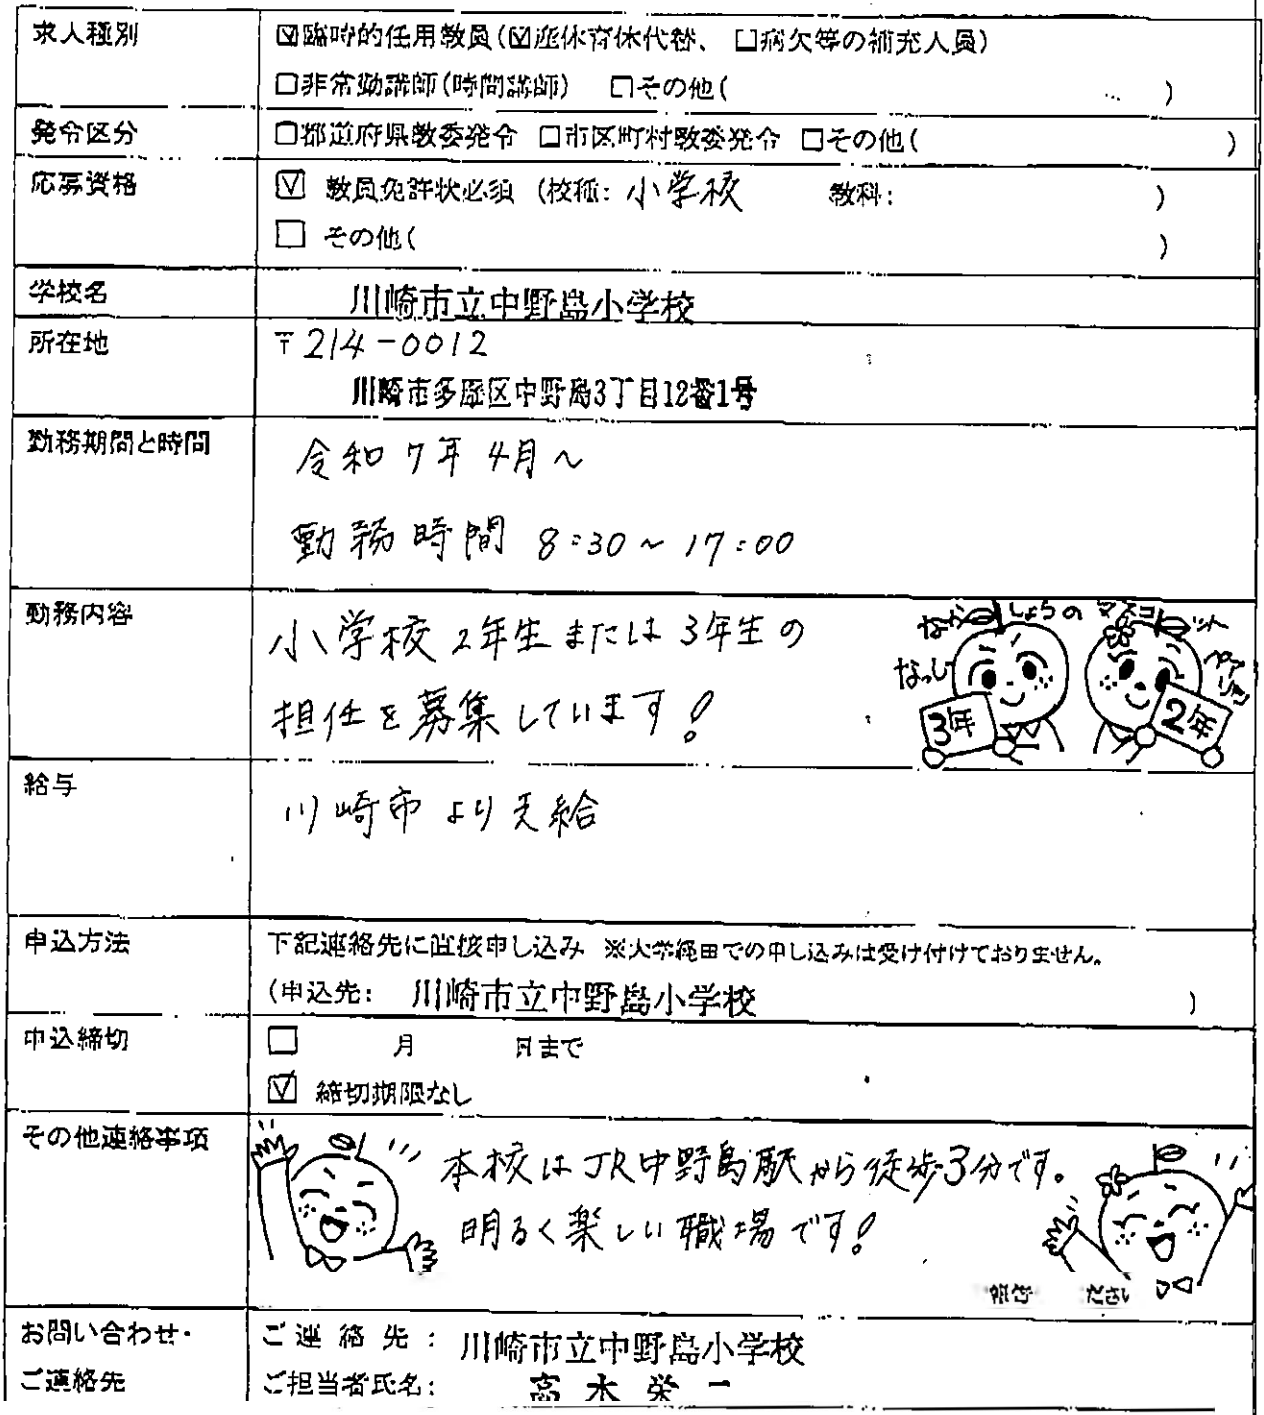 求人種別
☑臨時的任用教員(☑産休育休代替、 □病欠等の補充人員)
□非常勤講師(時間講師) □その他( )
発令区分
□都道府県教委発令 □市区町村教委発令 □その他( )
応募資格
☑ 教員免許状必須 (校種: 小学校 教科: )
□ その他( )
学校名
川崎市立中野島小学校
所在地
〒214-0012
川崎市多摩区中野島3丁目12番1号
勤務期間と時間
令和7年4月~
勤務時間 8:30~17:00
勤務内容
小学校2年生または3年生の
担任を募集しています!
なかのしょうの マスコット
なっし
3年
2年
給与
川崎市より支給
申込方法
下記連絡先に直接申し込み ※大学経由での申し込みは受け付けておりません。
(申込先: 川崎市立中野島小学校 )
申込締切
□ 月 日まで
☑ 締切期限なし
その他連絡事項
本校はJR中野島駅から徒歩3分です。
明るく楽しい職場です!
お問い合わせ・
ご連絡先
ご連絡先: 川崎市立中野島小学校
ご担当者氏名: 高木 栄一